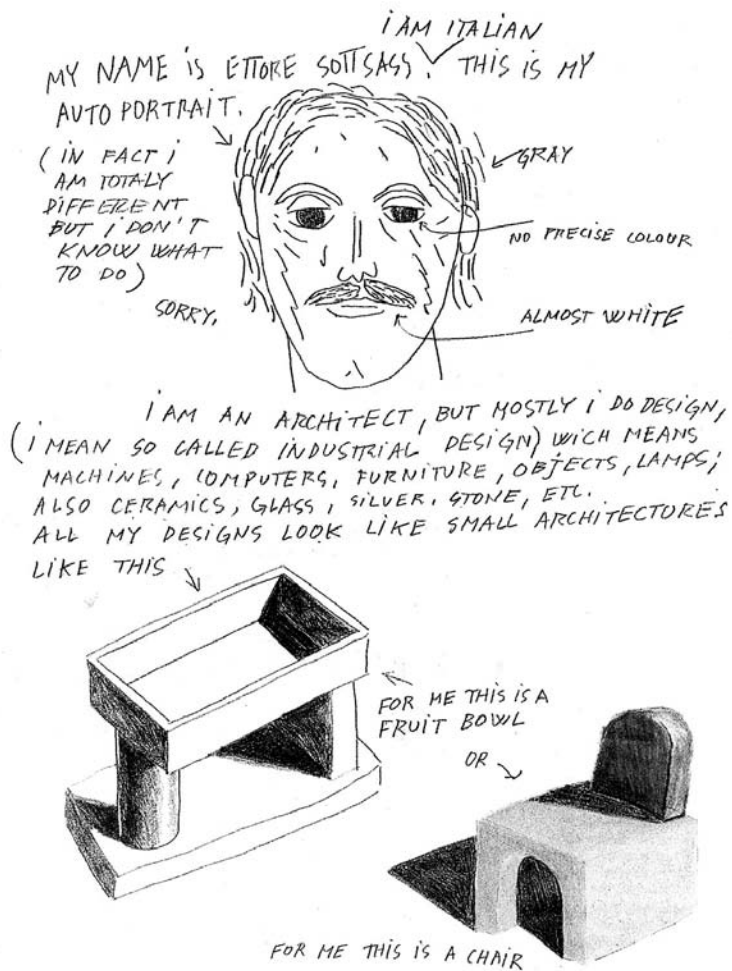 I AM ITALIAN
MY NAME IS ETTORE SOTTSASS. THIS IS MY
AUTO PORTRAIT.
(IN FACT I
AM TOTALY
DIFFERENT
BUT I DON'T
KNOW WHAT
TO DO)
SORRY.
GRAY
NO PRECISE COLOUR
ALMOST WHITE
I AM AN ARCHITECT, BUT MOSTLY I DO DESIGN,
(I MEAN SO CALLED INDUSTRIAL DESIGN) WICH MEANS
MACHINES, COMPUTERS, FURNITURE, OBJECTS, LAMPS;
ALSO CERAMICS, GLASS, SILVER. STONE, ETC.
ALL MY DESIGNS LOOK LIKE SMALL ARCHITECTURES
LIKE THIS
FOR ME THIS IS A
FRUIT BOWL
OR
FOR ME THIS IS A CHAIR